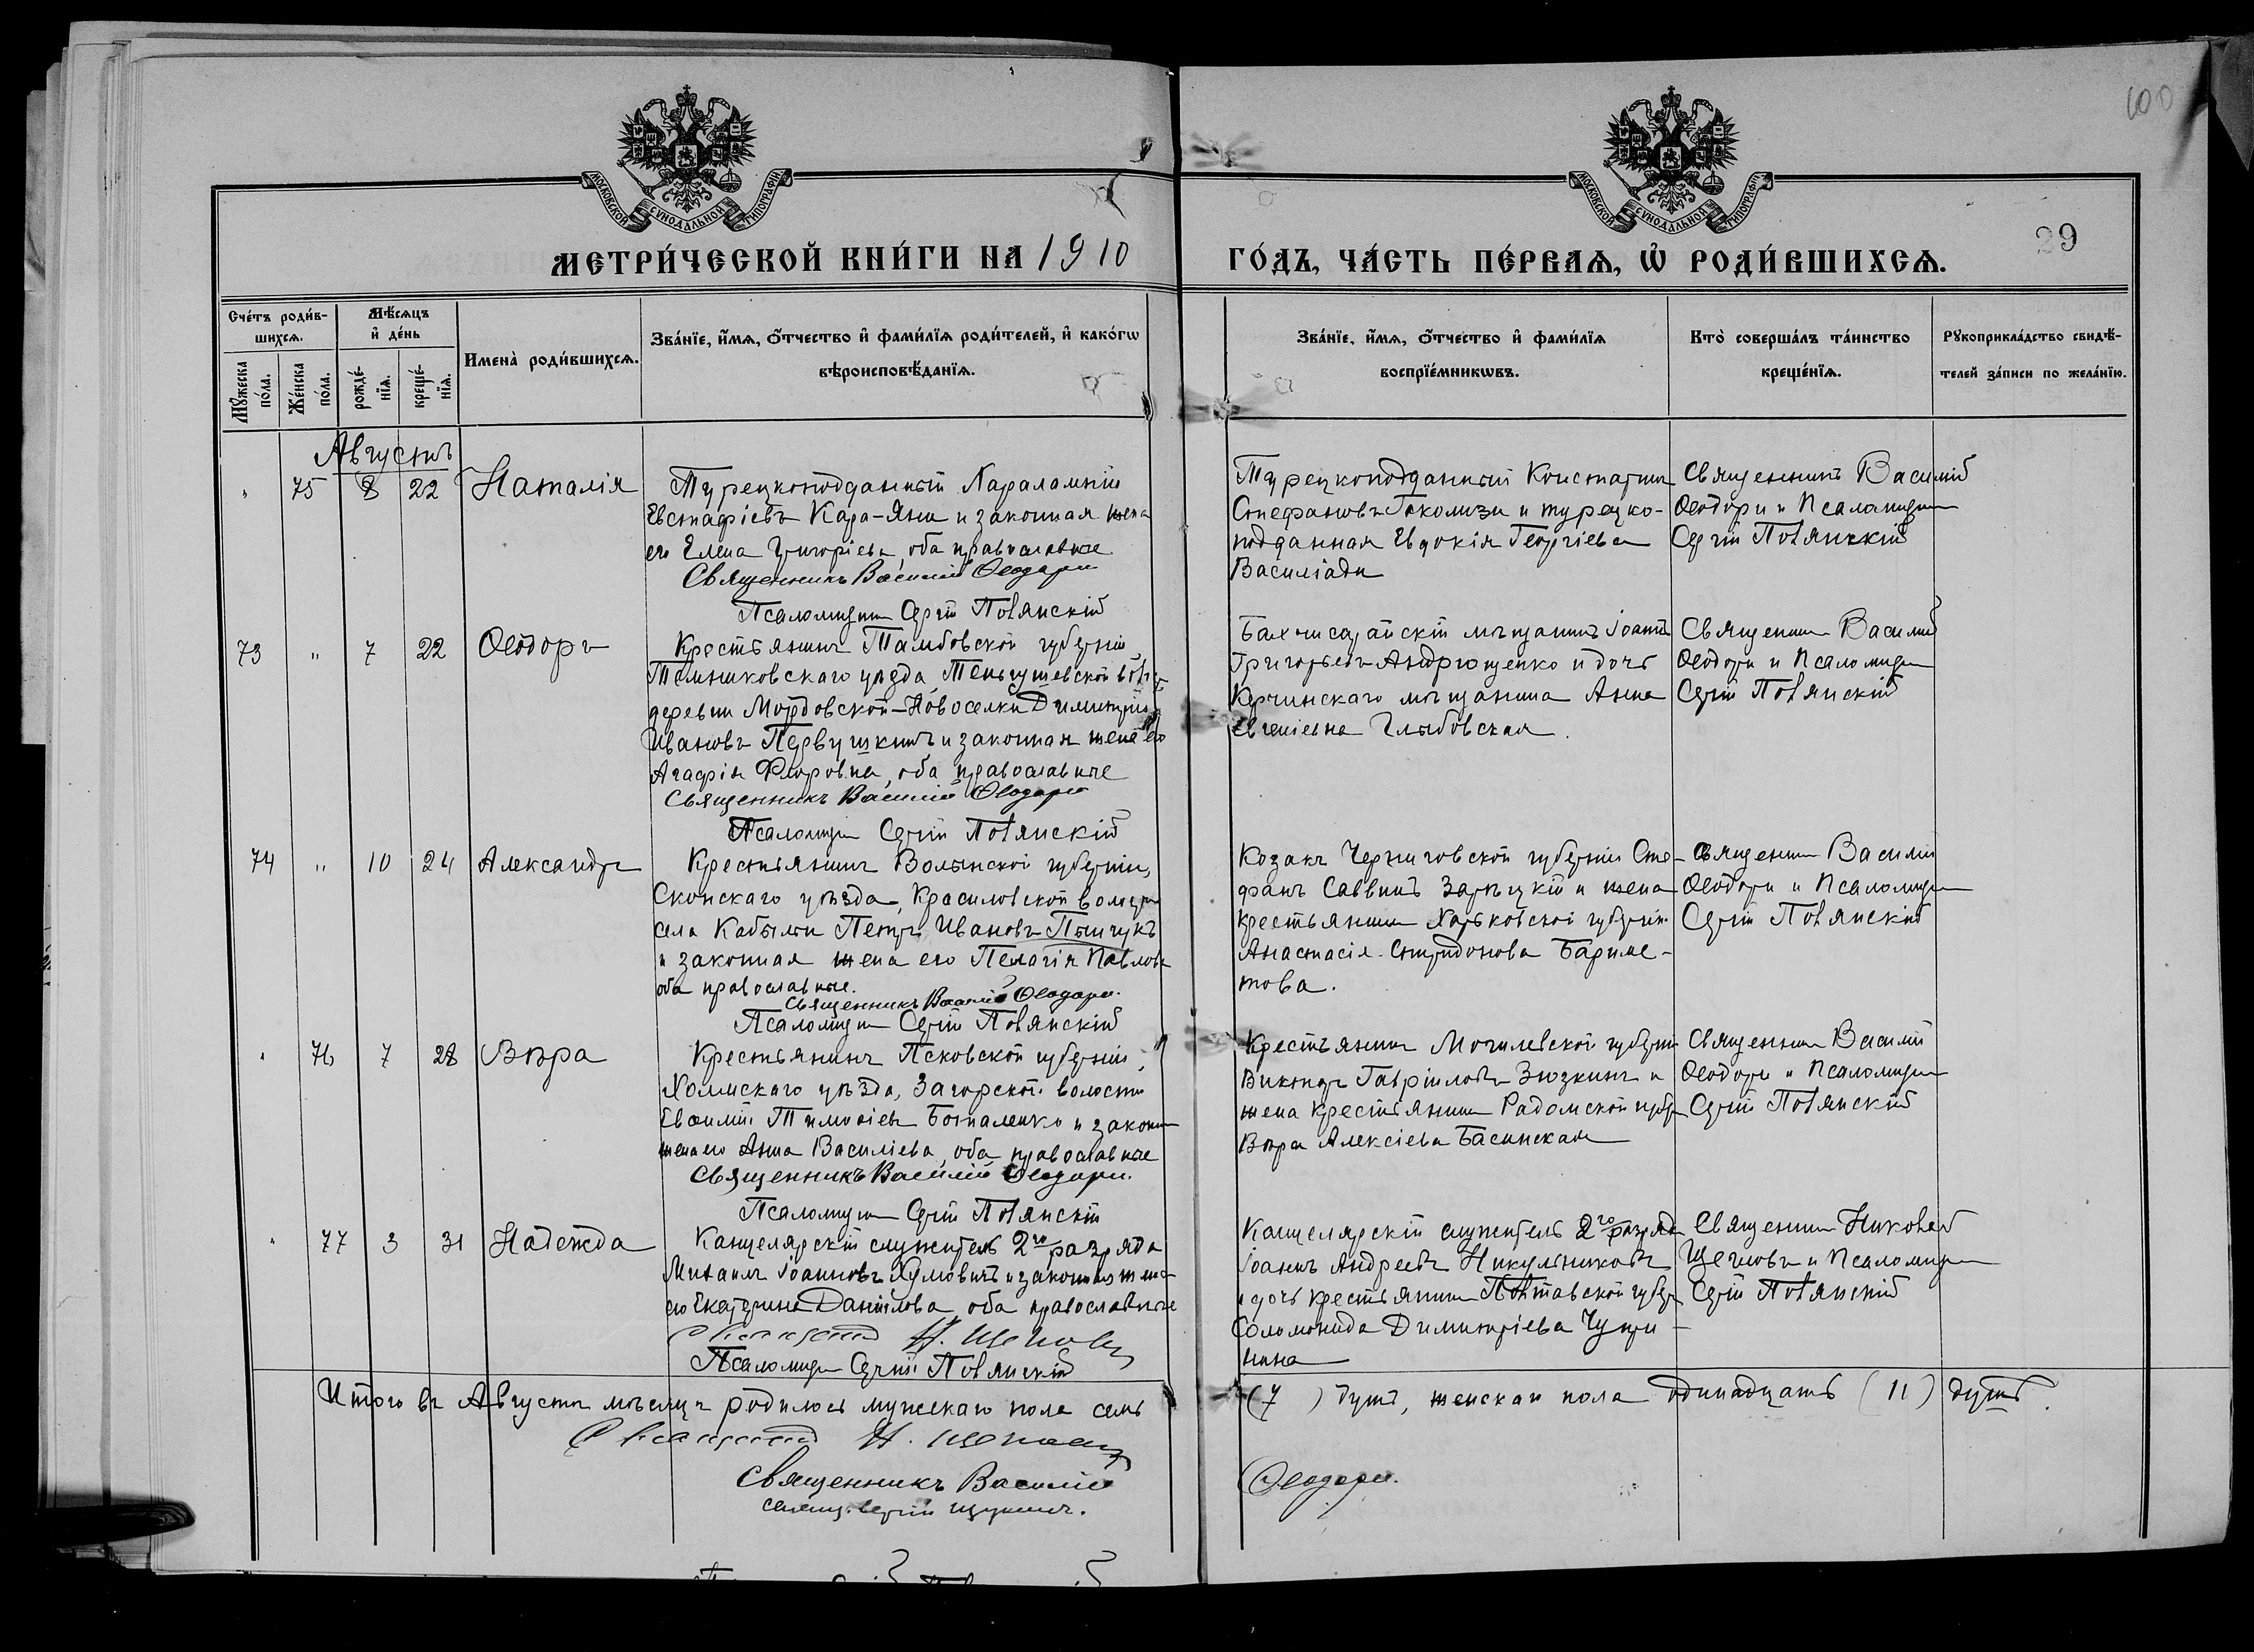 100
29
МОСКОВСКОЙ СѴНОДАЛЬНОЙ ТИПОГРАФІИ
МОСКОВСКОЙ СѴНОДАЛЬНОЙ ТИПОГРАФІИ
МЕТРИ́ЧЕСКОЙ КНИ́ГИ НА 1910
ГО́ДЪ, ЧА́СТЬ ПЕ́РВАѦ, Ѡ҆ РОДИ́ВШИХСѦ.
Сче́тъ роди́в-
шихсѧ.
Мꙋ́жеска по́ла.
Же́нска по́ла.
Мѣ́сѧцъ
и҆ де́нь
рожде́-
нїѧ.
креще́-
нїѧ.
Имена̀ роди́вшихсѧ.
Зва́нїе, и҆́мѧ, ѻ҆́тчество и҆ фами́лїѧ роди́телей, и҆ како́гѡ
вѣроисповѣ́данїѧ.
Зва́нїе, и҆́мѧ, ѻ҆́тчество и҆ фами́лїѧ
воспрїе́мникѡвъ.
Кто̀ соверша́лъ та́инство
креще́нїѧ.
Рꙋкоприкла́дство свидѣ́-
телей за́писи по жела́нїю.
Августъ
" 75 8 22 Наталія
Турецкоподданный Харалампій
Евстафіевъ Кара-Яни и законная жена
его Елена Григоріева, оба православные
Священникъ Василій Ѳеодори
Псаломщик Сергій Повянскій
Турецкоподданный Констатин
Стефановъ Токолизи и турецко-
подданная Евдокія Георгіева
Василіади
Священникъ Василій
Ѳеодори и Псаломщик
Сергій Повянскій
73 " 7 22 Ѳеодоръ
Крестьянинъ Тамбовской губерніи
Темниковскаго уѣзда Теньгушевской вол
деревни Мордовской-Новоселки Димитрій
Ивановъ Первушкинъ и законная жена его
Агафія Флоровна, оба православные
Священникъ Василій Ѳеодори
Псаломщик Сергій Повянскій
Бахчисарайскій мѣщанинъ Іоаннъ
Григорьевъ Андрющенко и дочь
Керчинскаго мѣщанина Анна
Евгеніевна Глыбовская.
Священник Василій
Ѳеодори и Псаломщик
Сергій Повянскій
74 " 10 24 Александръ
Крестьянинъ Волынской губерніи,
уѣзда, Красиловской волости
села Петръ Ивановъ
и законная жена его Пелагія Павлова
оба православные.
Священникъ Василій Ѳеодори.
Псаломщик Сергій Повянскій
Козакъ Черниговской губерніи Сте-
фанъ Саввинъ Зарѣцкій и жена
крестьянина Харьковской губерніи
Анастасія Спиридонова Бариме-
това.
Священник Василій
Ѳеодори и Псаломщик
Сергій Повянский
" 76 7 28 Вѣра
Крестьянинъ Псковской губерніи,
Холмскаго уѣзда, Загорской волости
Евѳимій Тимоѳіевъ и законн
жена его Анна Василіева, оба православные
Священникъ Василій Ѳеодори.
Псаломщик Сергій Повянскій
Крестьянин Могилевской губерніи
Викторъ Гавріиловъ Зюзкинъ и
жена крестьянина Радомской губер
Вѣра Алексіева Басинская
Священник Василій
Ѳеодори и Псаломщик
Сергій Повянскій
" 77 3 31 Надежда
Канцелярскій служитель 2го разряда
Михаилъ Іоанновъ и законная жена
его Екатерина Даніилова, оба православные
Священникъ Н. Щегловъ
Псаломщик Сергій Повянскій
Канцелярскій служитель 2го разряда
Іоаннъ Андреевъ Никульниковъ
и дочь крестьянина Полтавской губер
Соломонида Димитріева Чупри-
нина
Священник Николай
Щегловъ и Псаломщик
Сергій Повянскій
Итого въ Августѣ мѣсяцѣ родилось мужскаго пола семь
(7) душъ, женскаго пола одинадцать (11) душъ.
Священникъ Н. Щегловъ
Священникъ Василій
Ѳеодори.
Священ. Сергій Щукинъ.